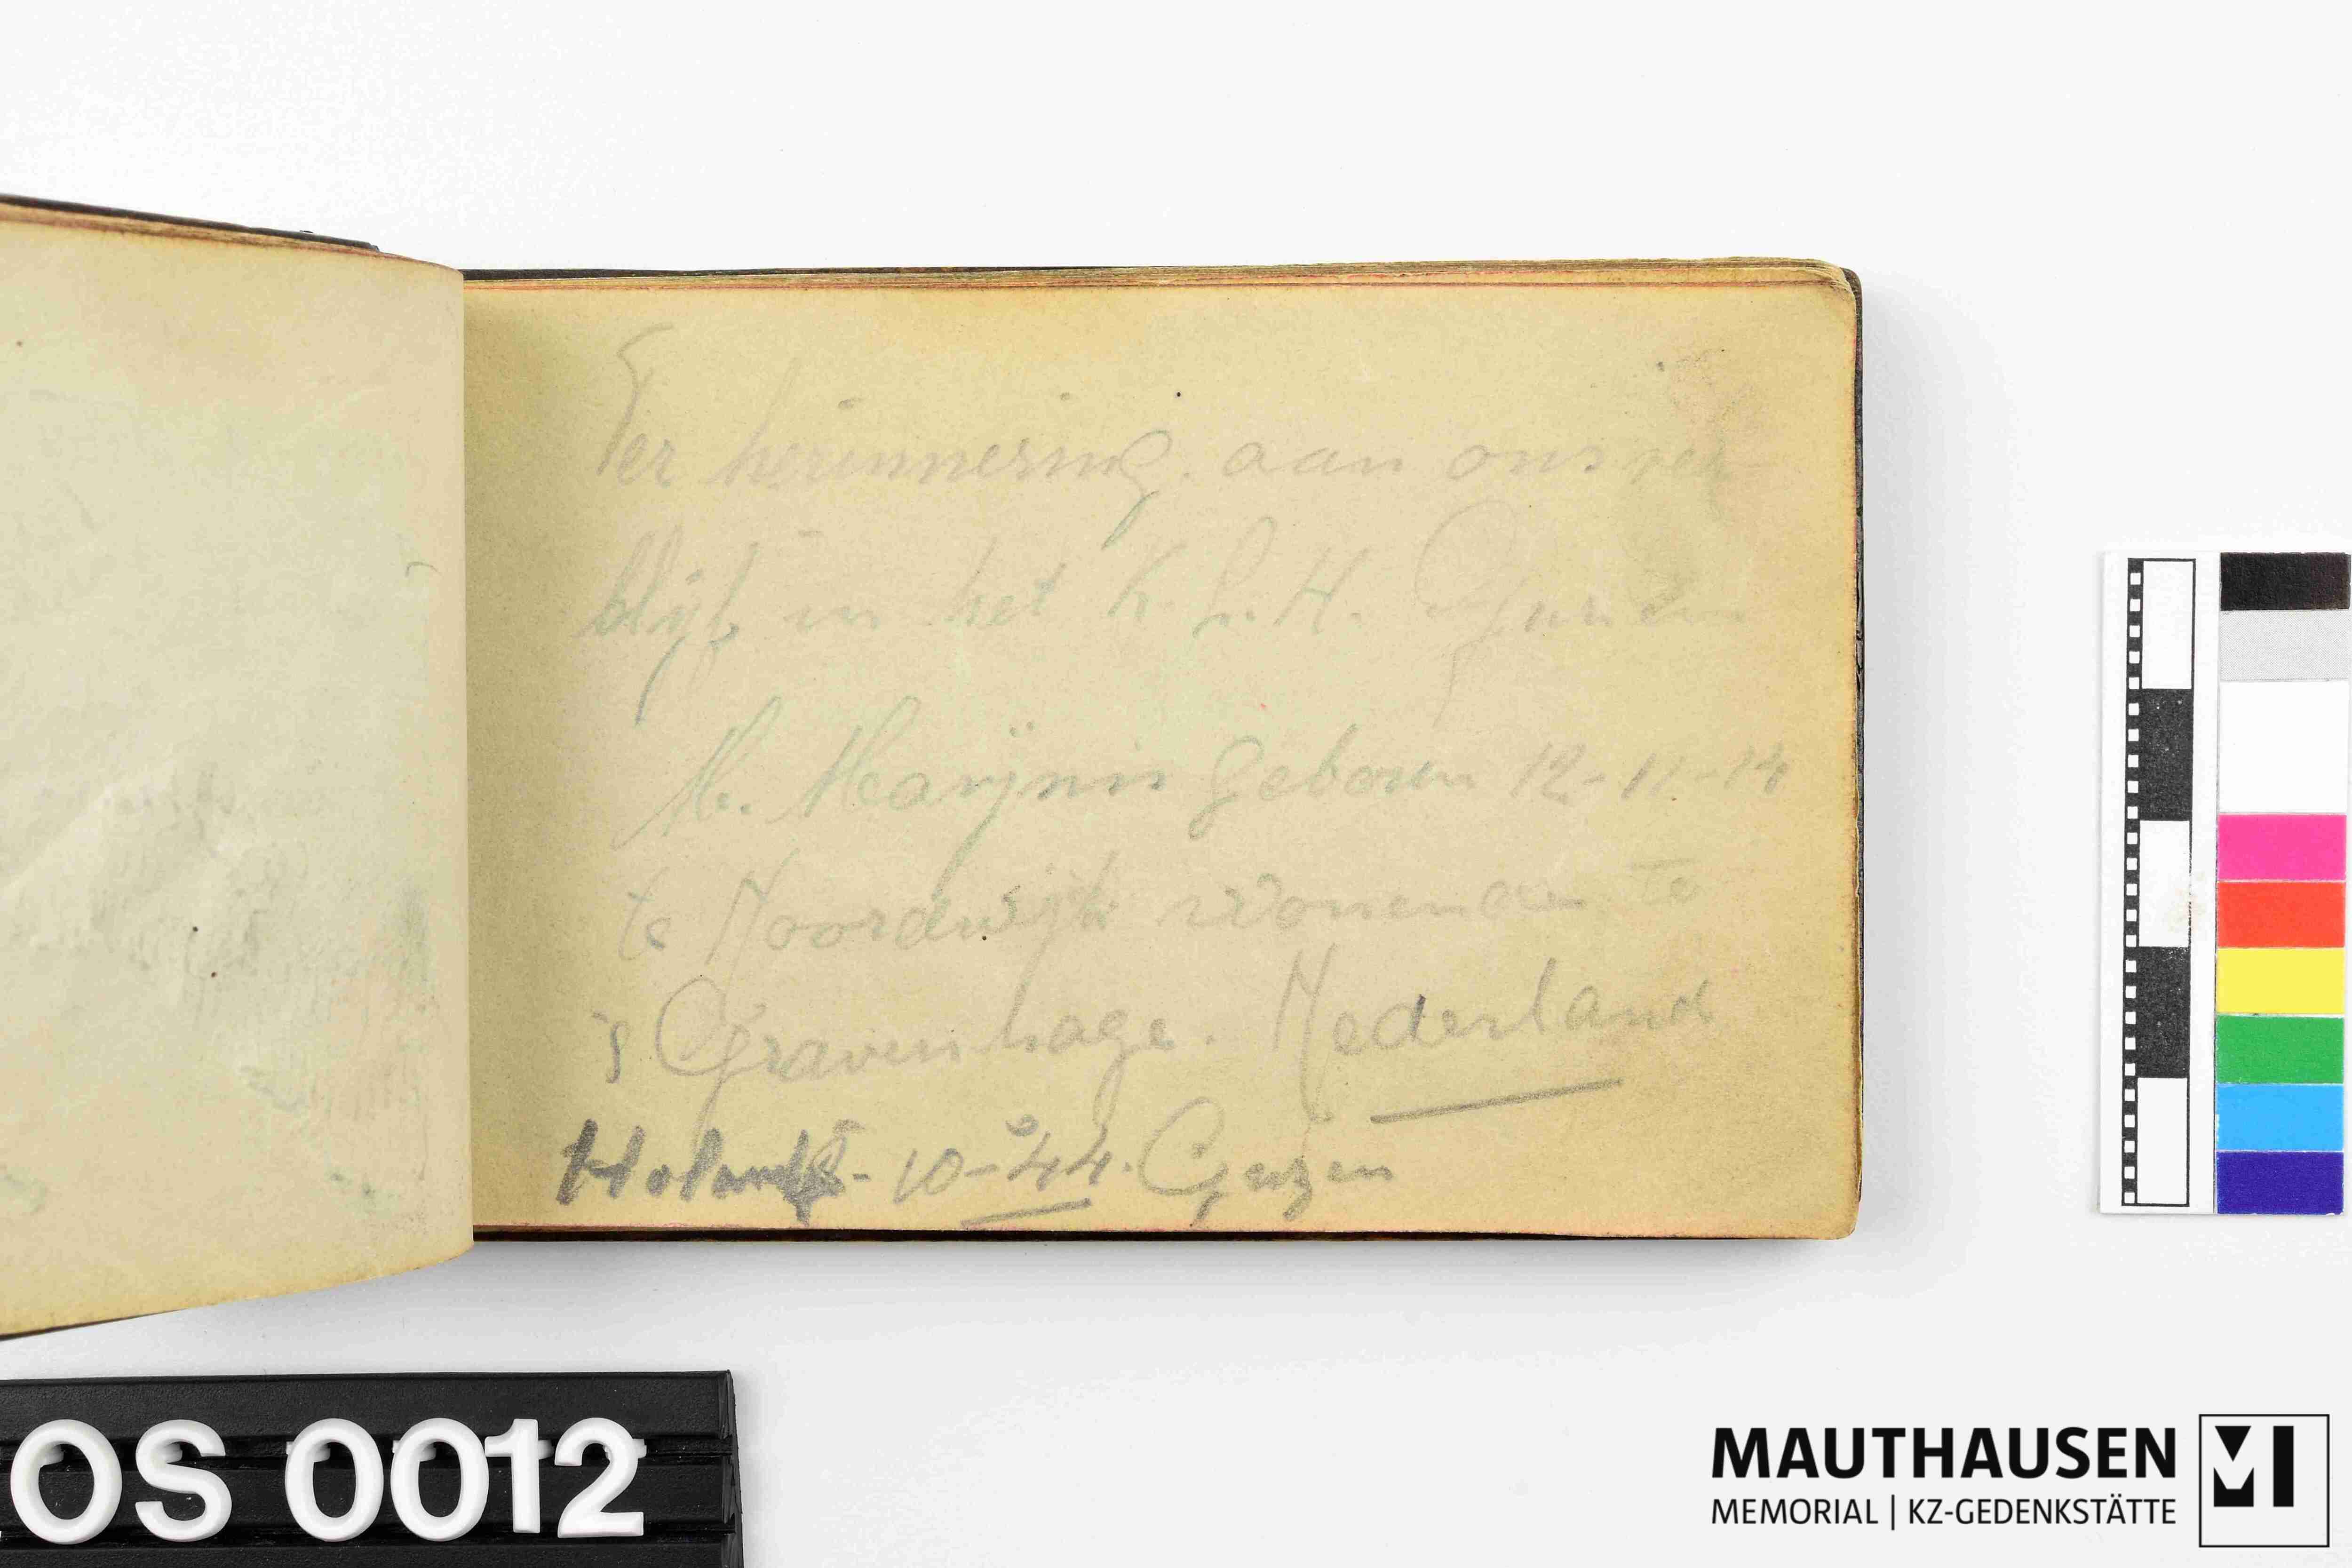 Ter herinnering aan ons ver-
blijf in het K.L.H. Gusen
M. Marijnis geboren 12-11-14
te Noordwijk wonende te
's Gravenhage. Nederland
10-44. Gusen
OS 0012
MAUTHAUSEN
MEMORIAL | KZ-GEDENKSTÄTTE